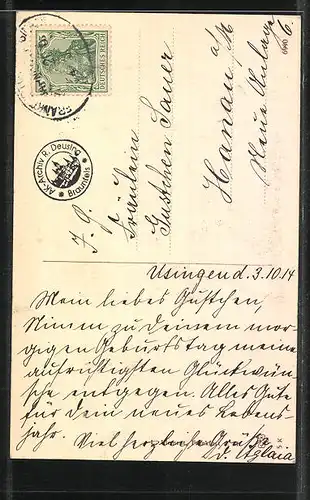 DEUTSCHES REICH
5
FRANKF
AK-Archiv R. Deusing
Braunfels
J. G.
Fräulein
Gustchen Sauer
Hanau a/M
Neue Anlage
6.
Usingen d. 3.10.14
Mein liebes Gustchen,
Nimm zu Deinem mor-
gigen Geburtstag meine
aufrichtigsten Glückwün-
sche entgegen. Alles Gute
für dein neues Lebens-
jahr. Viel herzliche Grüße
d. Aglaia